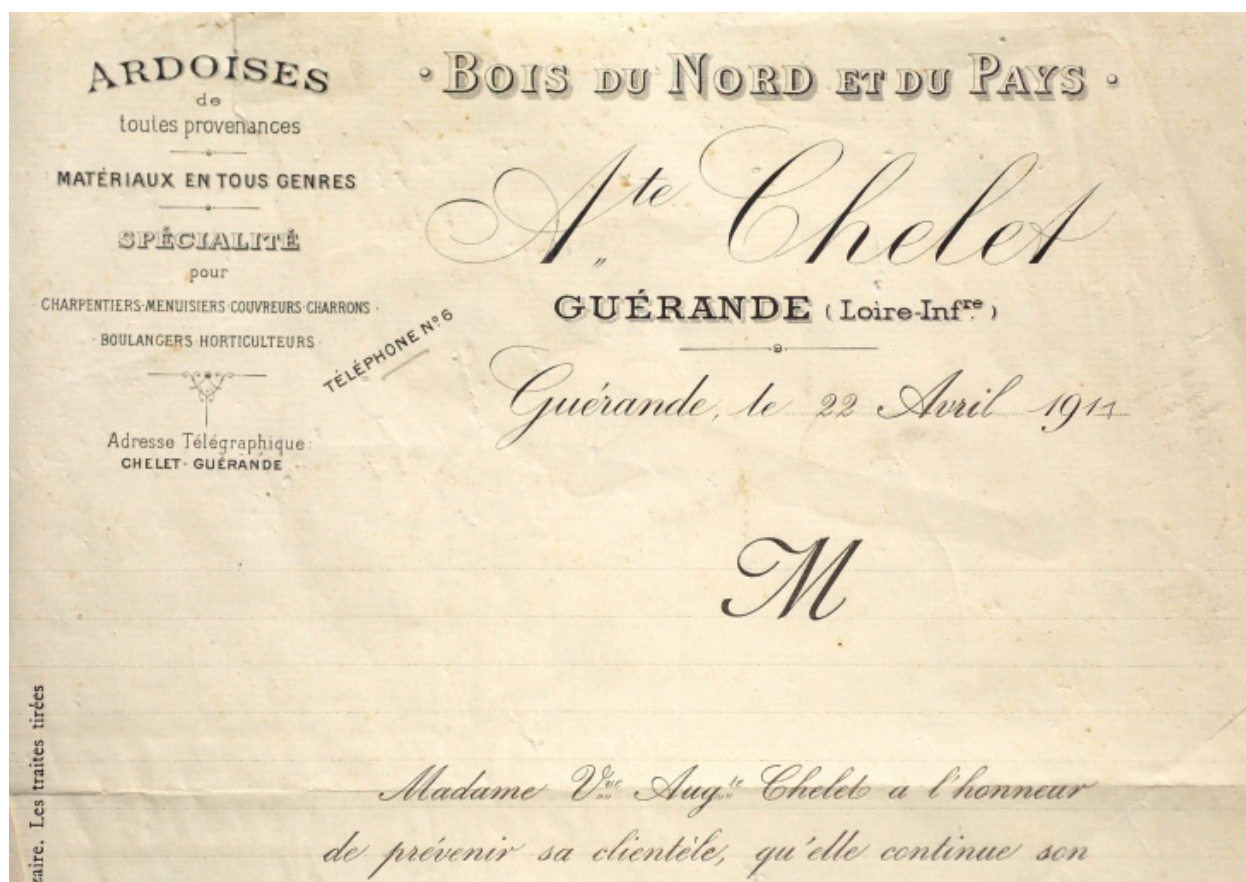 ARDOISES
de
toutes provenances
MATÉRIAUX EN TOUS GENRES
SPÉCIALITÉ
pour
CHARPENTIERS·MENUISIERS·COUVREURS·CHARRONS·
·BOULANGERS·HORTICULTEURS·
Adresse Télégraphique:
CHELET-GUÉRANDE
TÉLÉPHONE Nº6
· BOIS DU NORD ET DU PAYS ·
Ate Chelet
GUÉRANDE (Loire-Infre)
Guérande, le 22 Avril 1911
M
Madame Vve Augte Chelet a l'honneur
de prévenir sa clientèle, qu'elle continue son
zaire. Les traites tirées